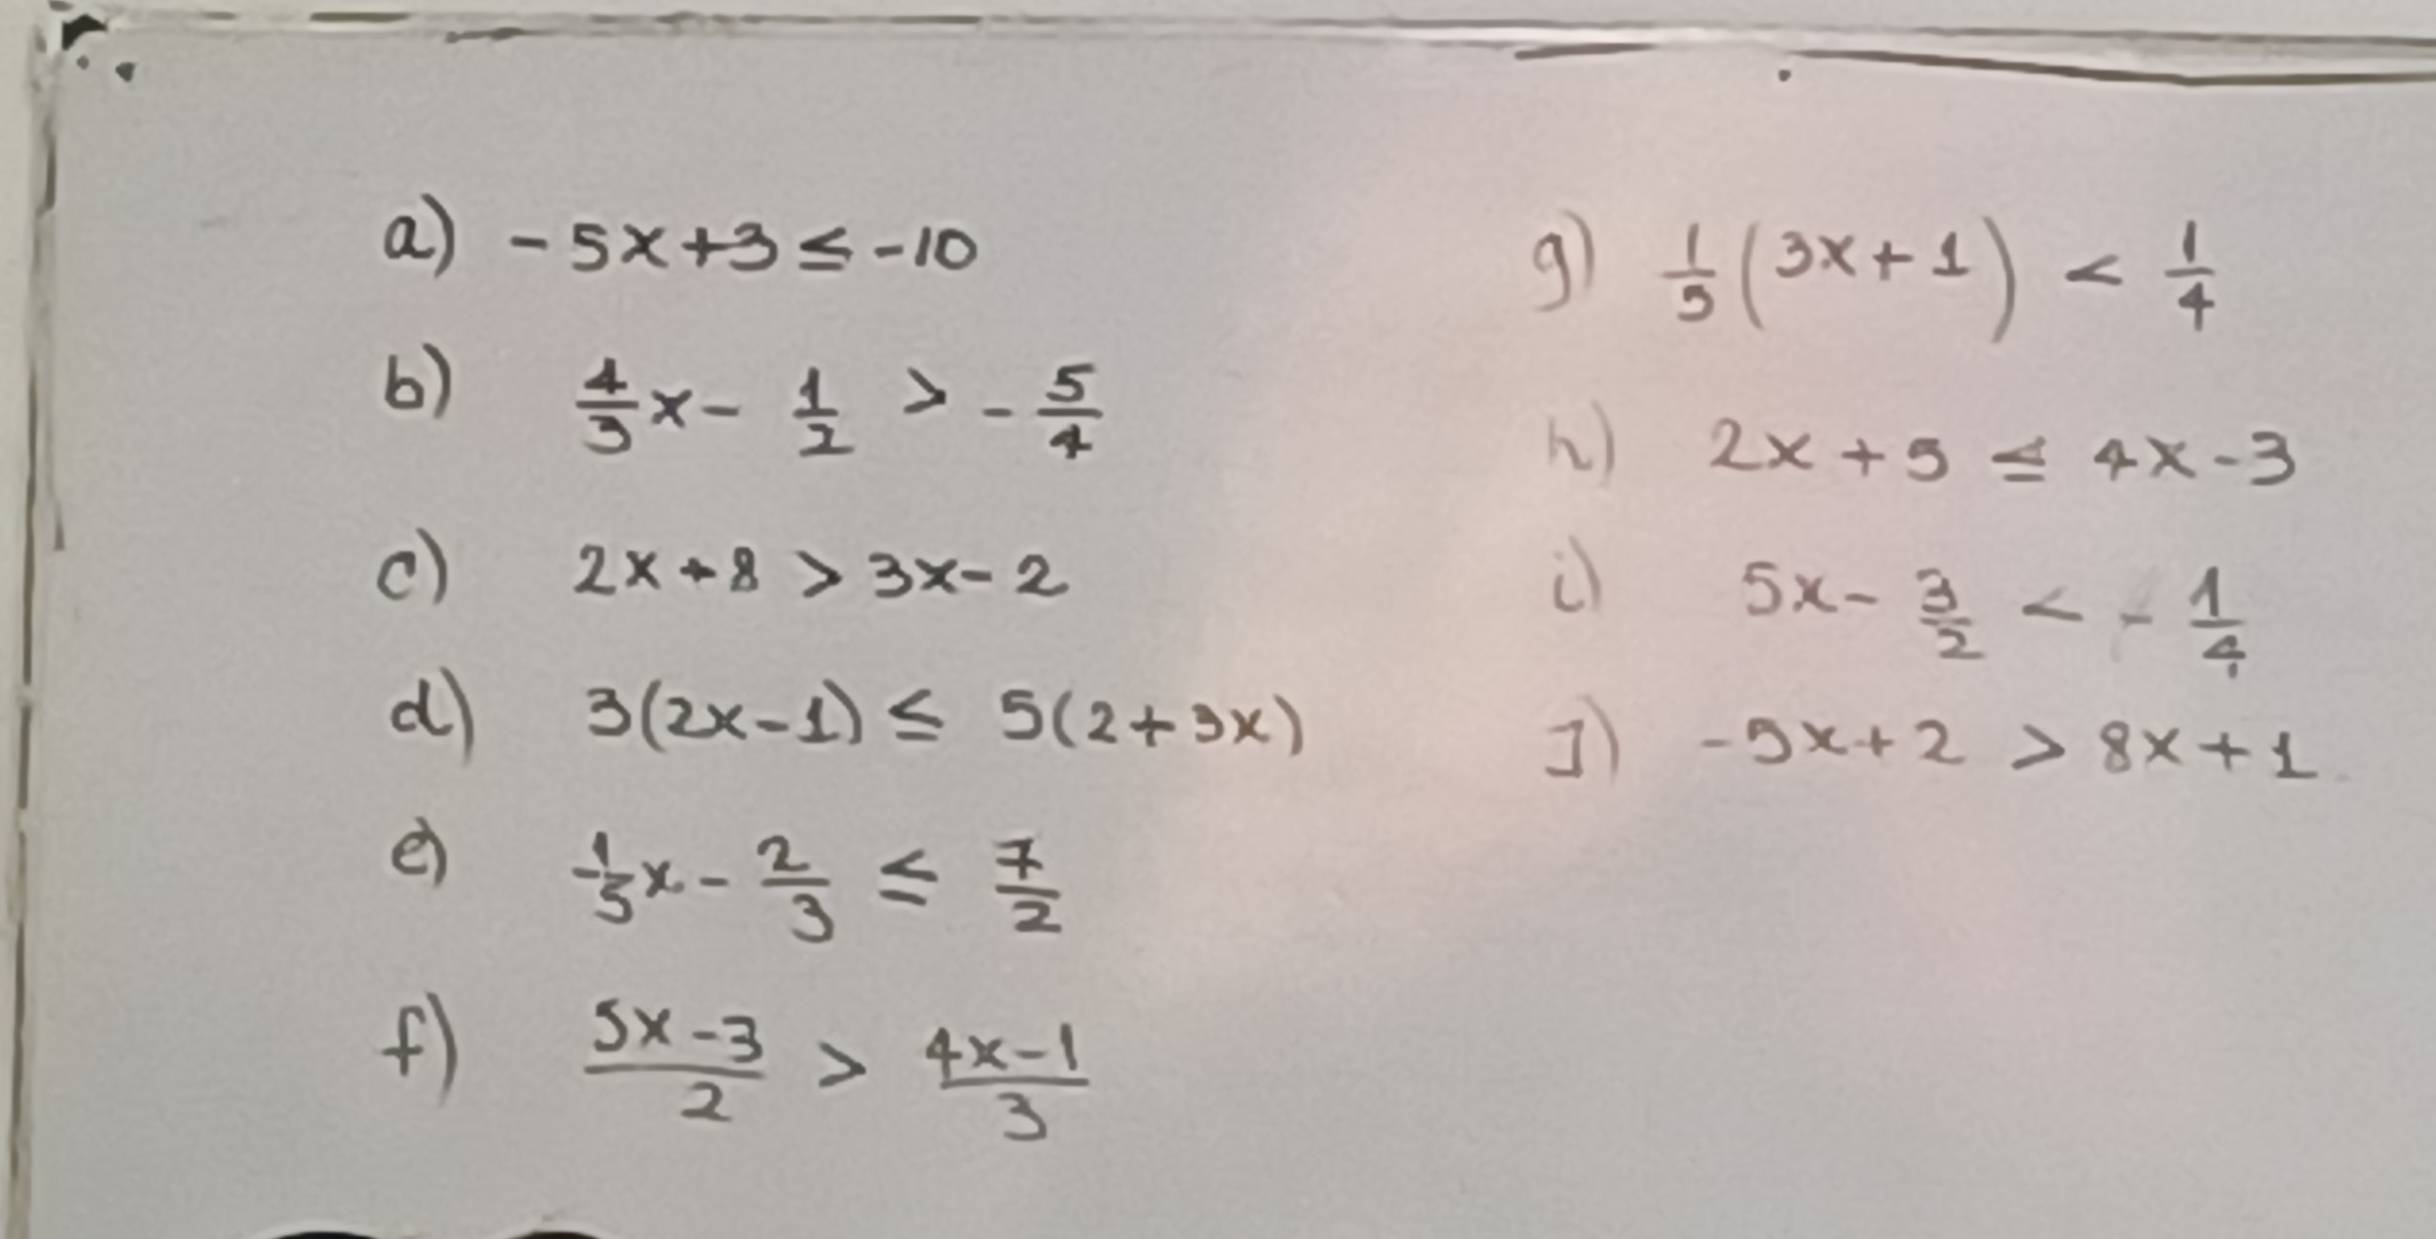 a) -5x+3 ≤ -10
b) 4/3 x - 1/2 > - 5/4
c) 2x + 8 > 3x - 2
d) 3(2x-1) ≤ 5(2+3x)
e) -1/5 x - 2/3 ≤ 7/2
f) (5x-3)/2 > (4x-1)/3
g) 1/5 (3x+1) < 1/4
h) 2x + 5 ≤ 4x - 3
i) 5x - 3/2 < - 1/4
J) -5x+2 > 8x+1